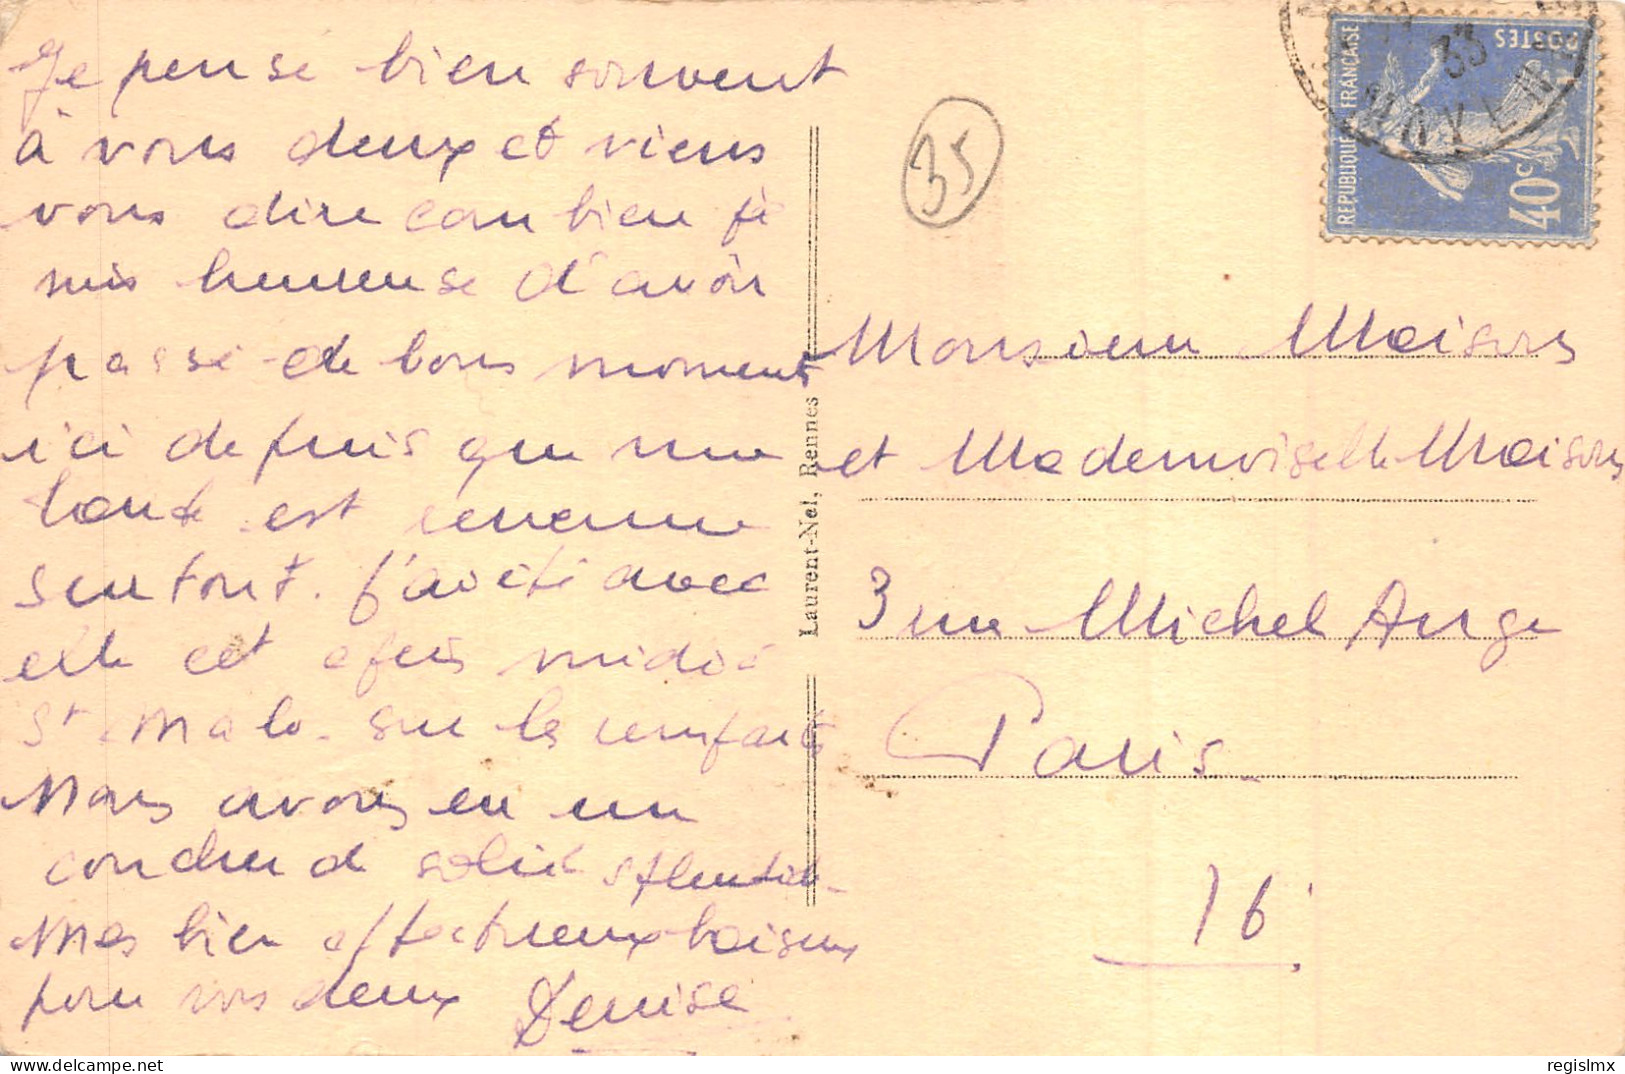 Je pense bien souvent
à vous deux et viens
vous dire combien je
suis heureuse d'avoir
passé de bons moments
ici depuis que ma
tante est revenue
surtout. J'ai été avec
elle cet après midi à
St Malo sur les remparts
Nous avons eu un
coucher de soleil splendide
Mes bien affectueux baisers
pour vos deux Denise
Laurent-Nel, Rennes
35
REPUBLIQUE FRANÇAISE
POSTES
40c
33
Monsieur Maisons
et Mademoiselle Maisons
3 rue Michel Ange
Paris
16
regislmx